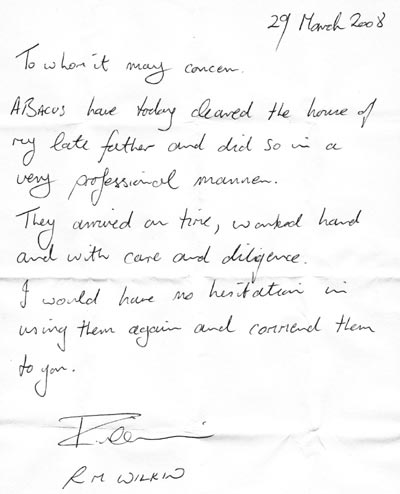 29 March 2008
To whom it may concern.
ABACUS have today cleared the house of
my late father and did so in a
very professional manner.
They arrived on time, worked hard
and with care and diligence.
I would have no hesitation in
using them again and commend them
to you.
R M WILKIN